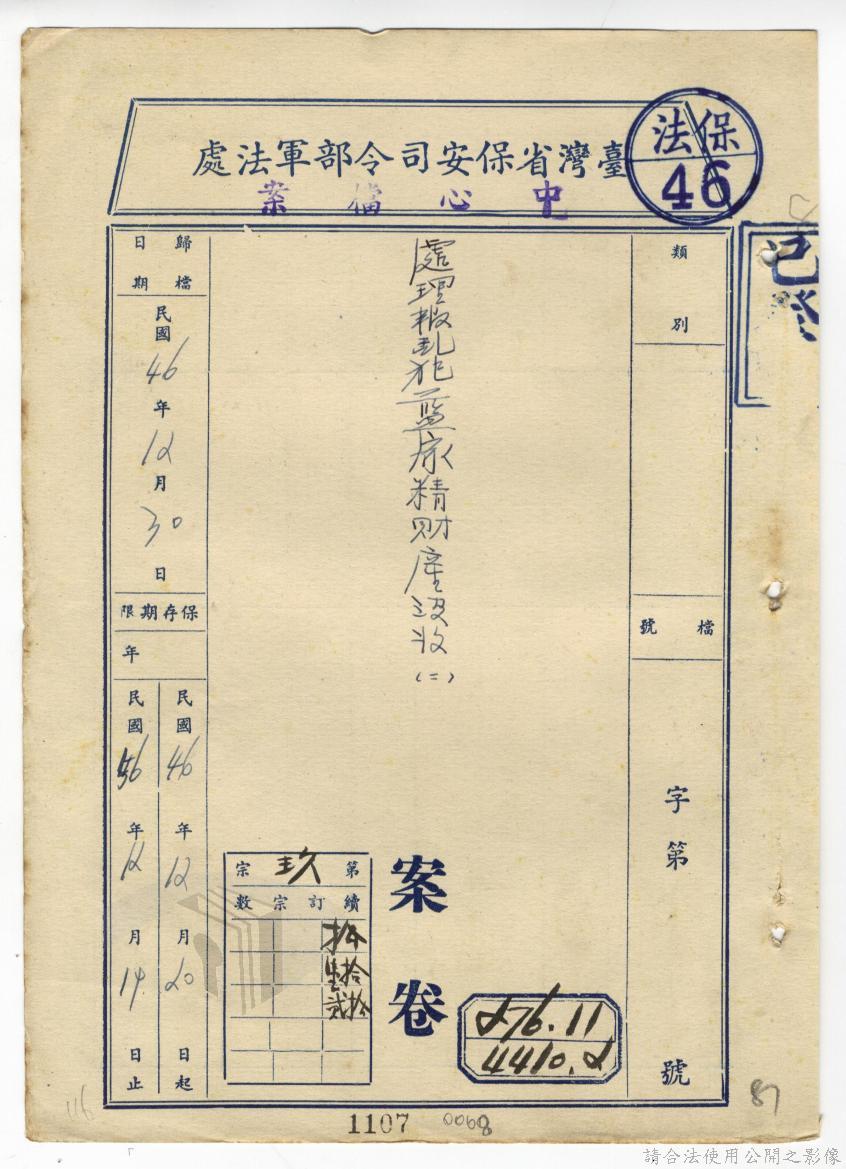 保法
46
臺灣省保安司令部軍法處
中心檔案
已登
類別
檔號
字第 號
處理叛亂犯藍家精財產沒收
(二)
案卷
276.11
4410.2
第玖宗
續訂宗數
拾
拾壹
拾貳
歸檔日期
民國46年12月30日
保存期限
年
民國46年12月20日起
民國56年12月19日止
1107
0068
87
116
請合法使用公開之影像